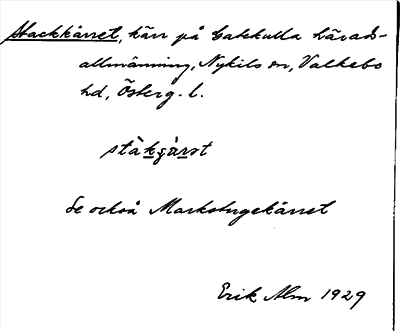 Stackkärret, kärr på Gatekulla härads-
allmänning, Nykils sn, Valkebo
hd, Österg. l.
ståkɡä̀rət
Se också Markstugekärret
Erik Alm 1929